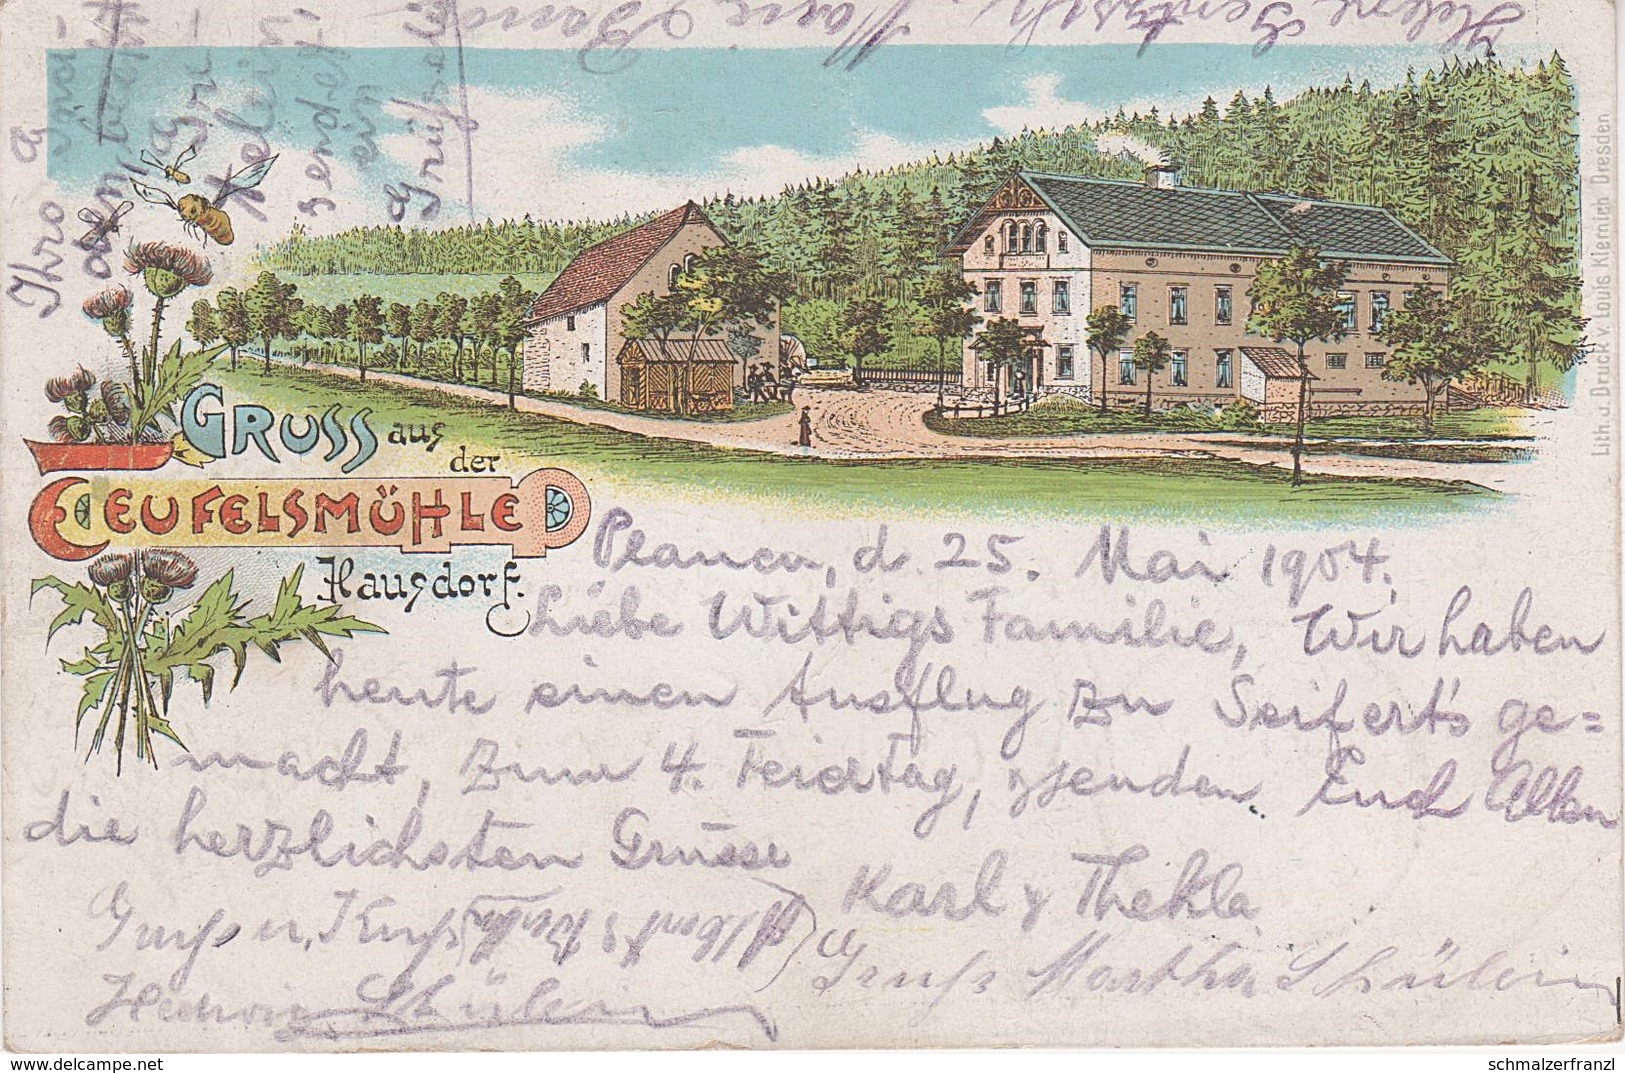 Helene Marie
Gruss aus
der
Teufelsmühle
Hausdorf.
Lith. u. Druck v. Louis Klemich Dresden
Plauen, d. 25. Mai 1904.
Liebe Wittigs Familie, Wir haben
heute einen Ausflug zu Seifert's ge=
macht, zum 4. Feiertag, senden Euch Allen
die herzlichsten Grüsse
Karl u Thekla
Gruß u. Kuß
Hedwig Schübein
Gruß Martha Schübein
sendet
ein
delcampe.net
schmalzerfranzl